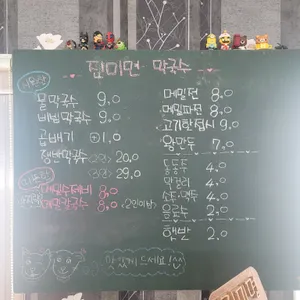 집미면 막국수
물막국수 9.0
비빔막국수 9.0
곱배기 +1.0
쟁반막국수 <2인> 20.0
<3인> 29.0
메밀수제비 8.0
메밀칼국수 8.0 <2인이상>
메밀전 8.0
메밀파전 8.0
고기한접시 9.0
왕만두 7.0
동동주 4.0
막걸리 4.0
소주·맥주 4.0
음료수 2.0
햇반 2.0
맛있게 드세요!^^